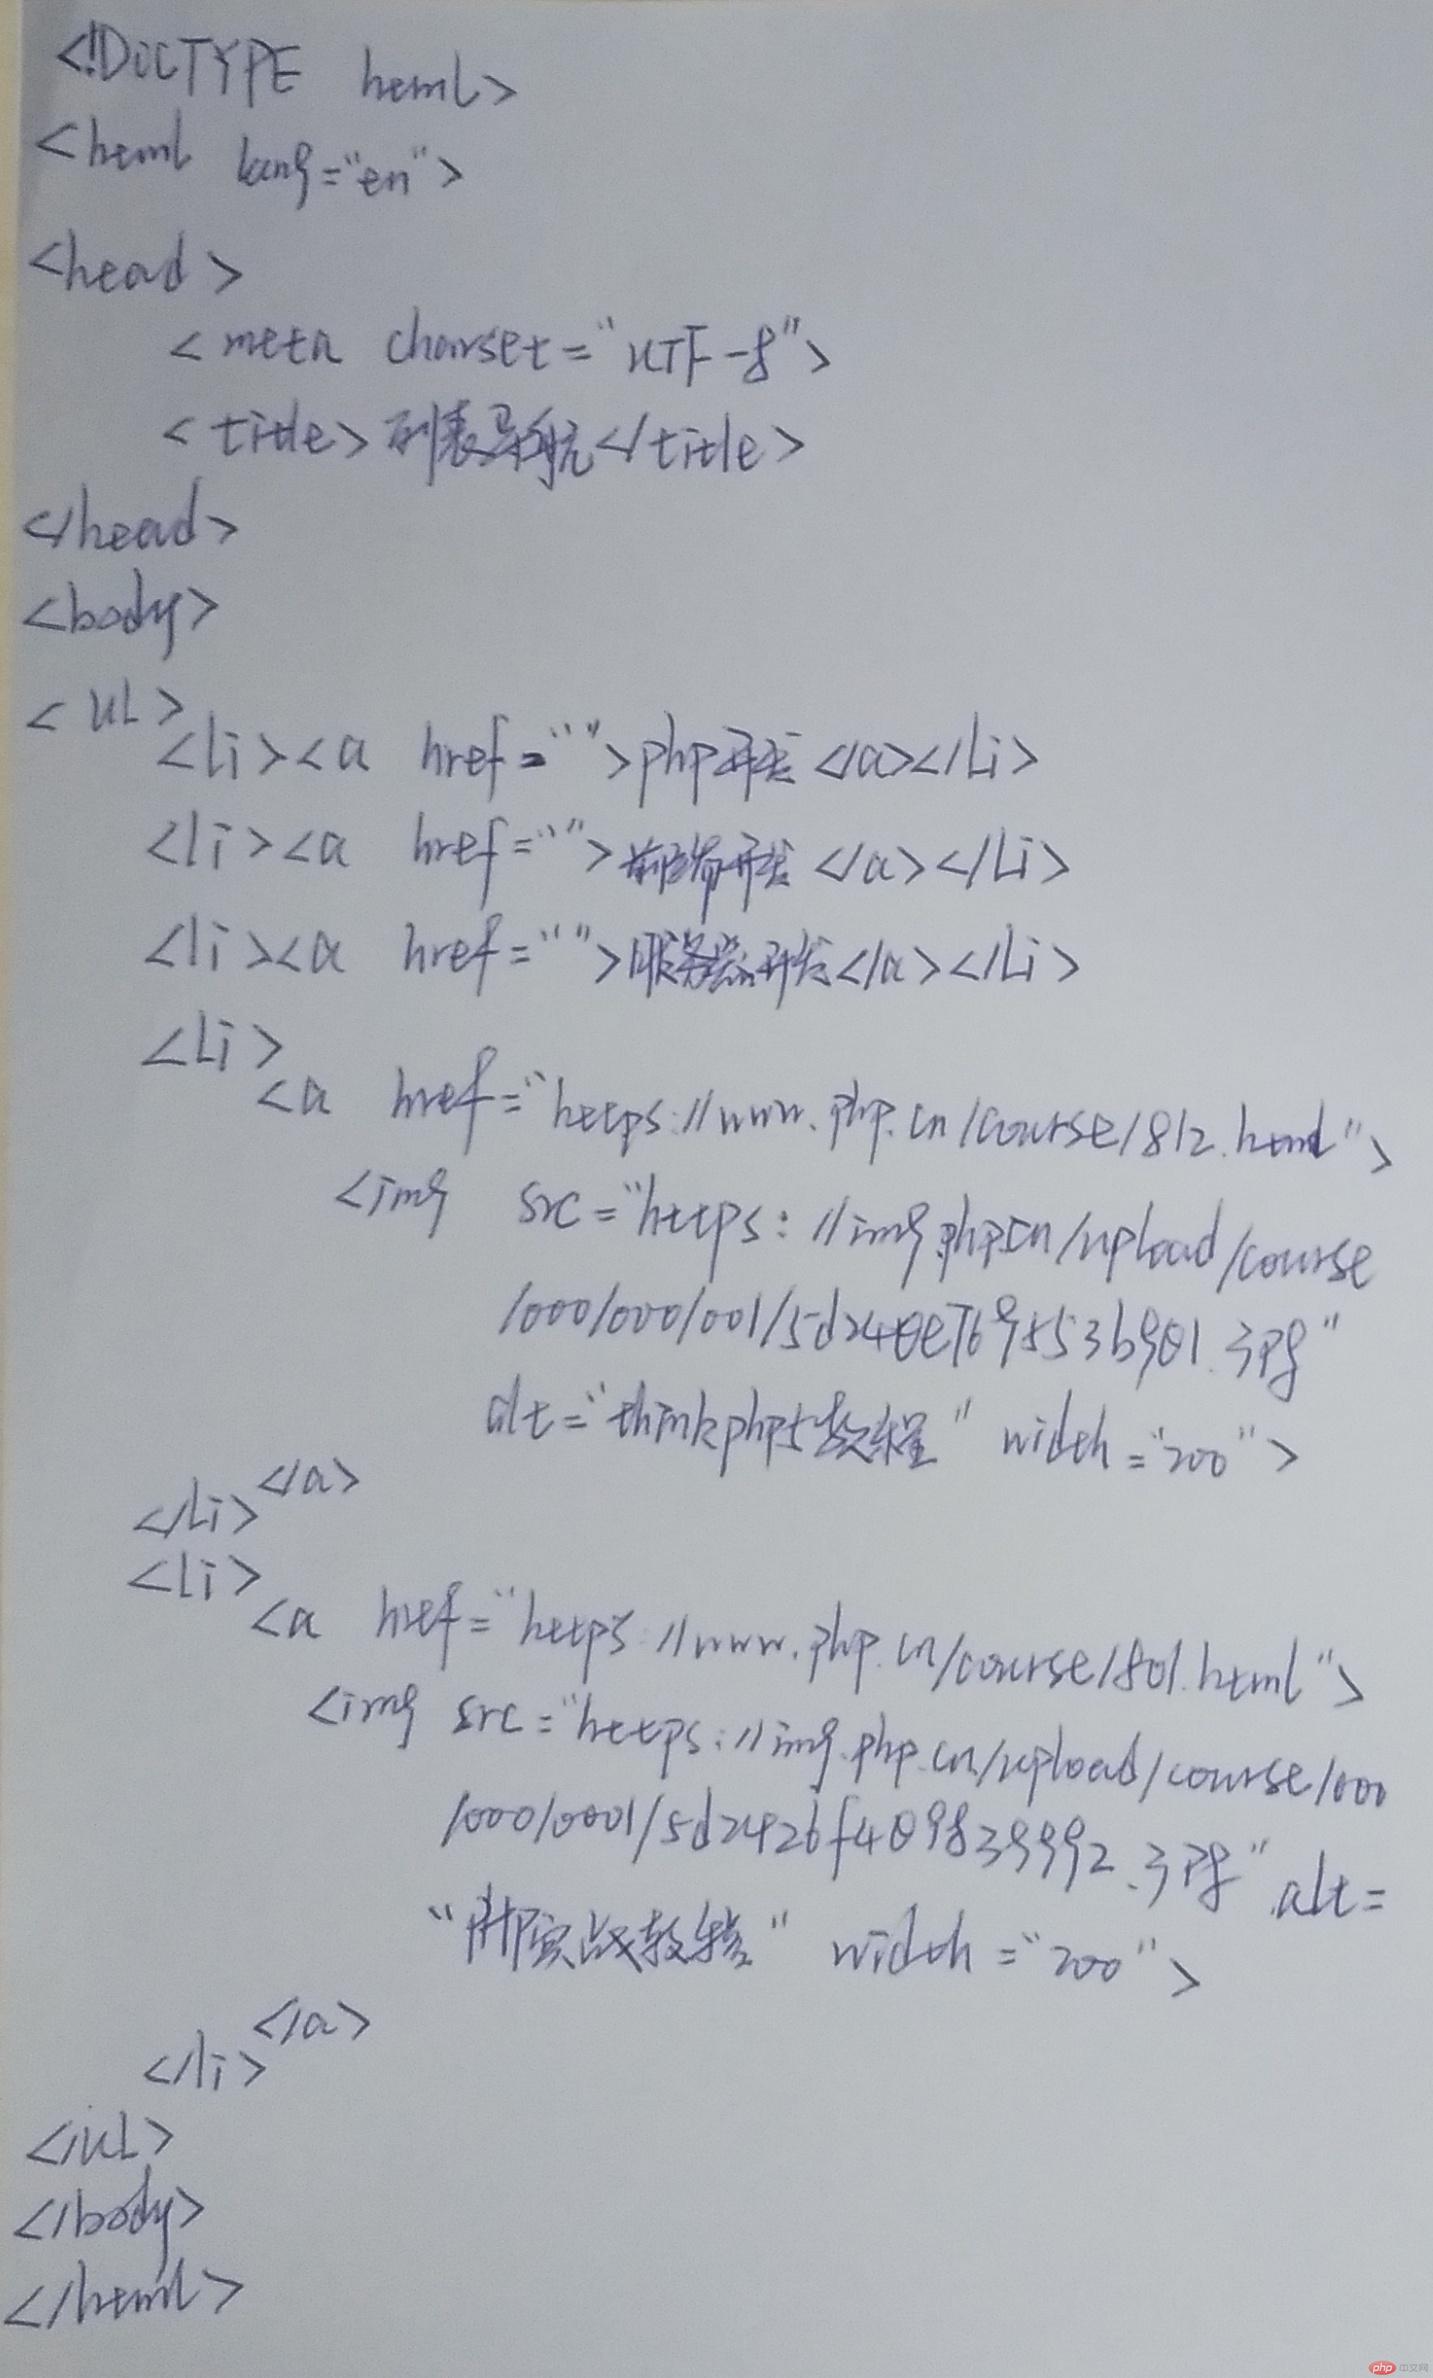 <!DOCTYPE html>
<html lang="en">
<head>
<meta charset="UTF-8">
<title>列表导航</title>
</head>
<body>
<ul>
<li><a href="">php开发</a></li>
<li><a href="">前端开发</a></li>
<li><a href="">服务器开发</a></li>
<li>
<a href="https://www.php.cn/course/812.html">
<img src="https://img.php.cn/upload/course
/000/000/001/
alt="thinkphp5教程" width="200">
</a>
</li>
<li>
<a href="https://www.php.cn/course/801.html">
<img src="https://img.php.cn/upload/course/000
/000/0001/5d2426f409839992.jpg" alt=
"PHP实战教程" width="200">
</a>
</li>
</ul>
</body>
</html>
php 中文网